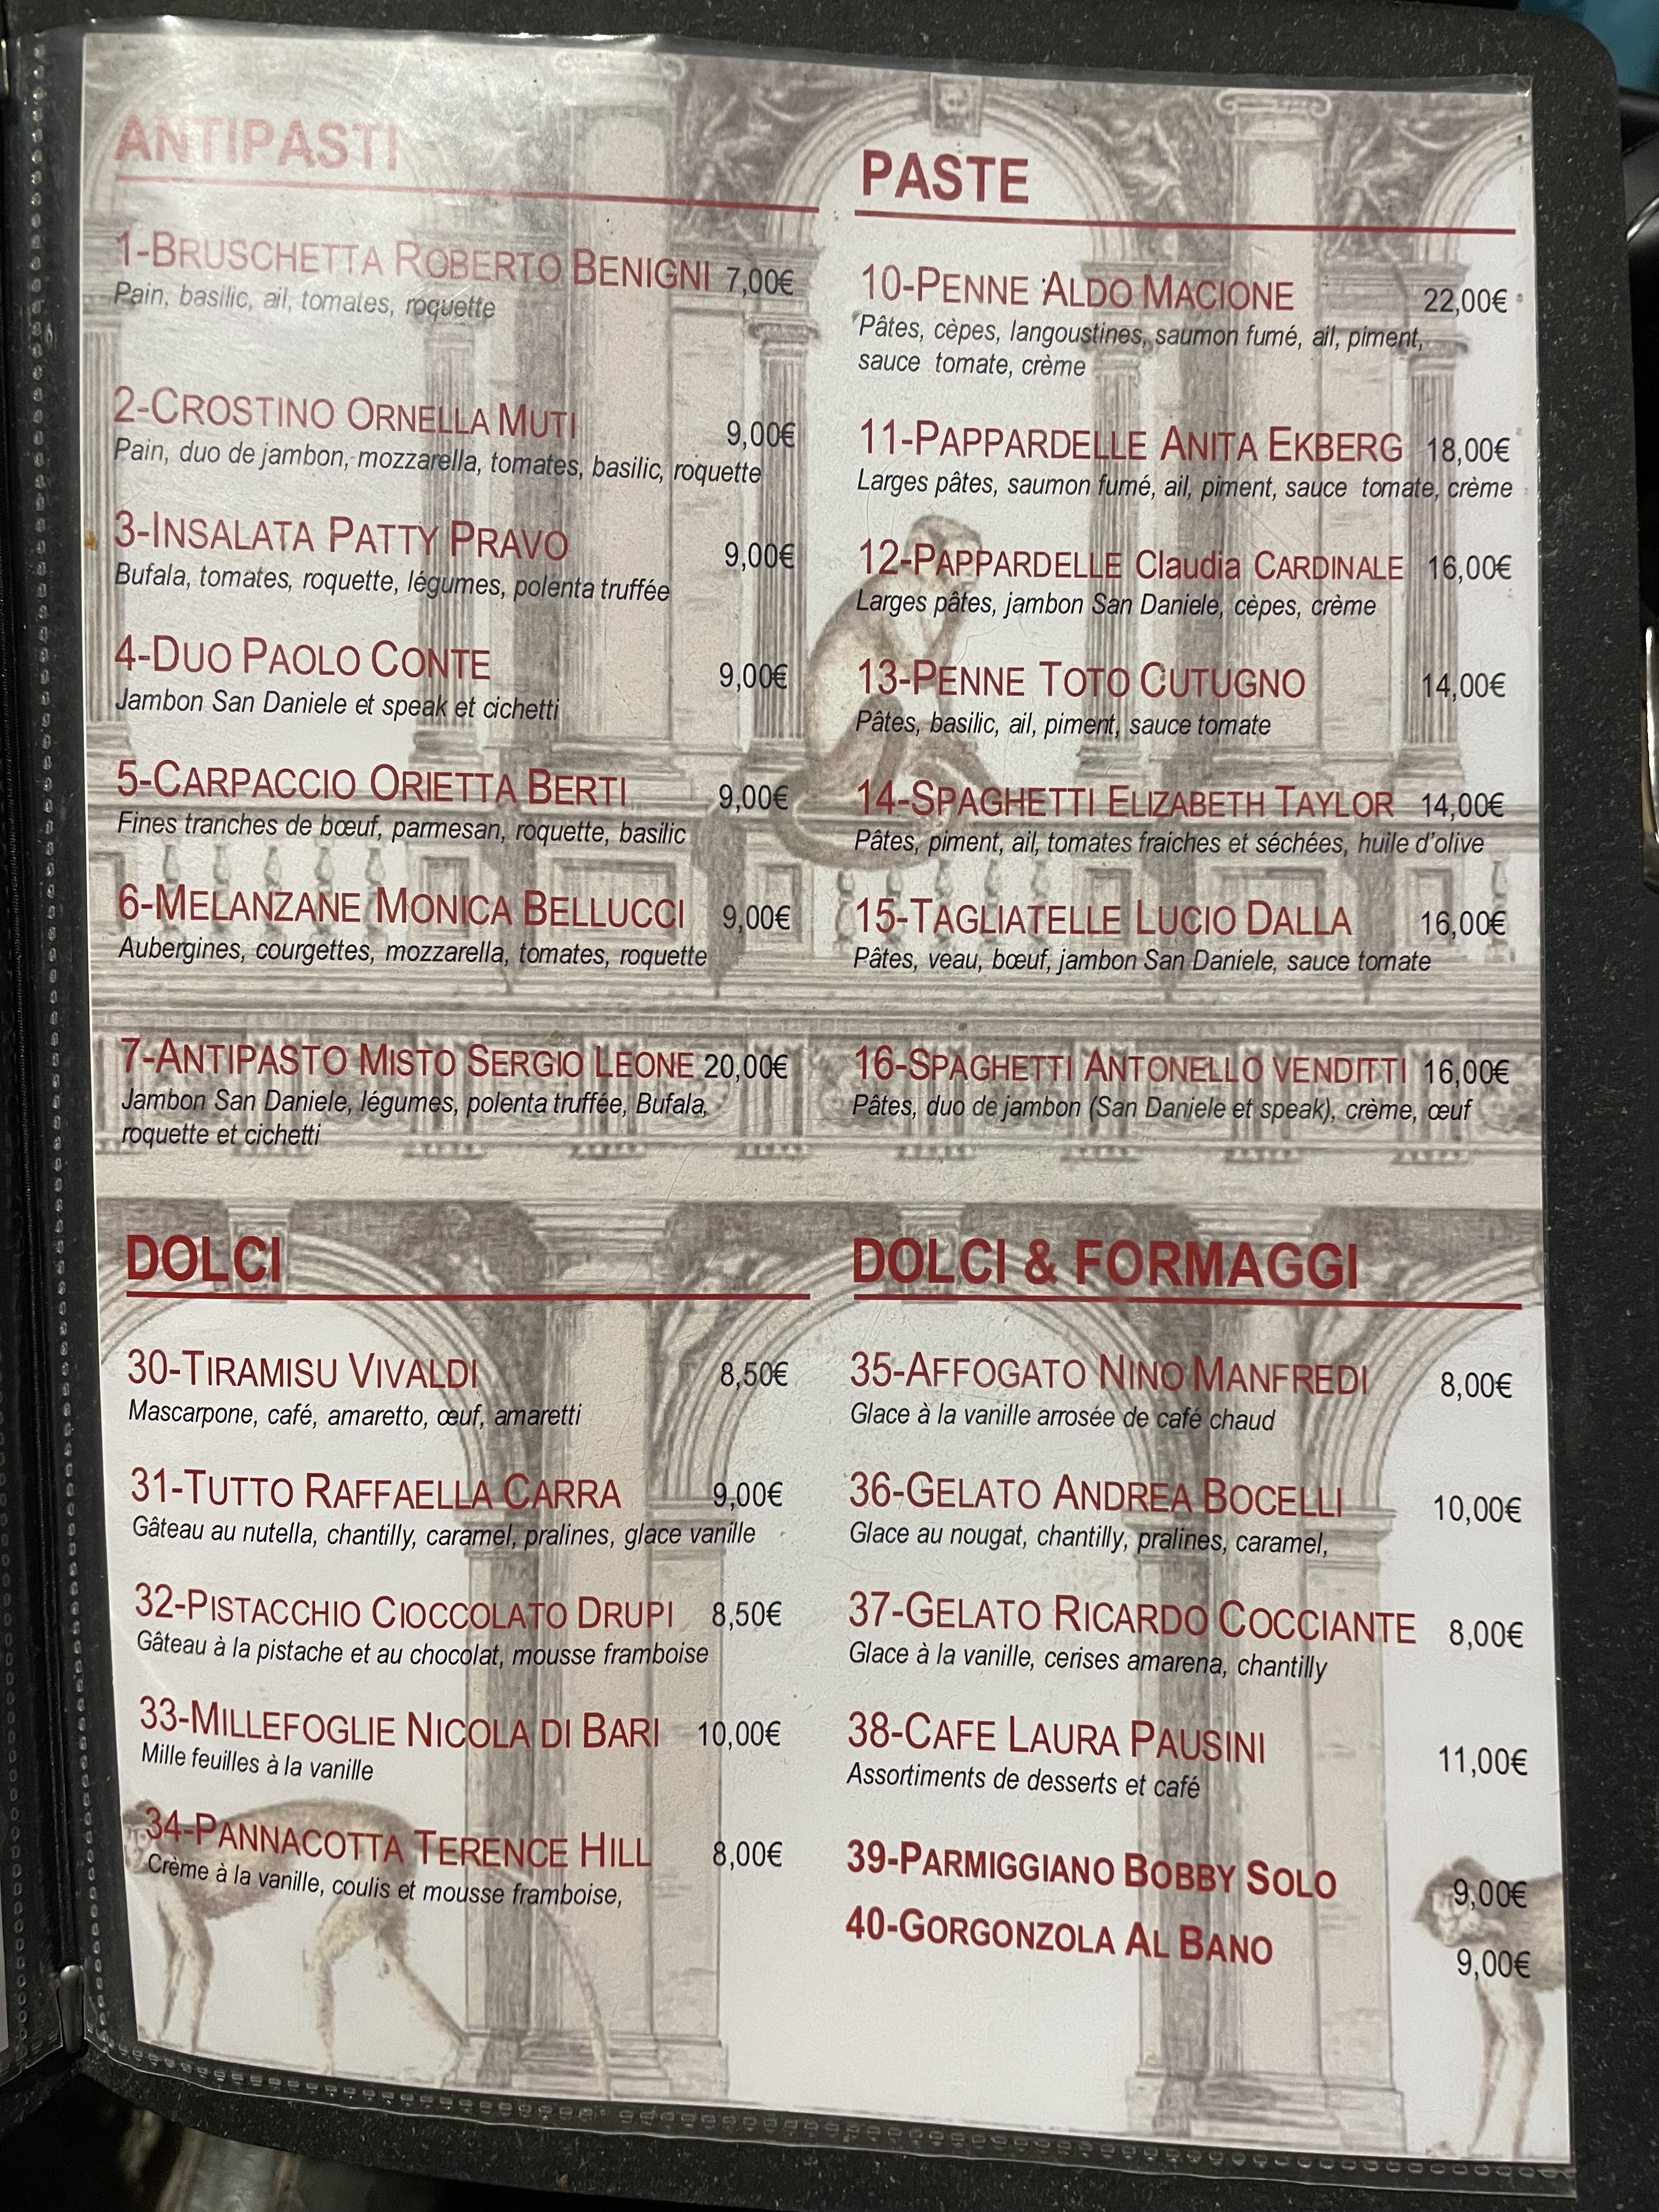 ANTIPASTI
1-BRUSCHETTA ROBERTO BENIGNI 7,00€
Pain, basilic, ail, tomates, roquette
2-CROSTINO ORNELLA MUTI 9,00€
Pain, duo de jambon, mozzarella, tomates, basilic, roquette
3-INSALATA PATTY PRAVO 9,00€
Bufala, tomates, roquette, légumes, polenta truffée
4-DUO PAOLO CONTE 9,00€
Jambon San Daniele et speak et cichetti
5-CARPACCIO ORIETTA BERTI 9,00€
Fines tranches de bœuf, parmesan, roquette, basilic
6-MELANZANE MONICA BELLUCCI 9,00€
Aubergines, courgettes, mozzarella, tomates, roquette
7-ANTIPASTO MISTO SERGIO LEONE 20,00€
Jambon San Daniele, légumes, polenta truffée, Bufala,
roquette et cichetti
PASTE
10-PENNE ALDO MACIONE 22,00€
Pâtes, cèpes, langoustines, saumon fumé, ail, piment,
sauce tomate, crème
11-PAPPARDELLE ANITA EKBERG 18,00€
Larges pâtes, saumon fumé, ail, piment, sauce tomate, crème
12-PAPPARDELLE Claudia CARDINALE 16,00€
Larges pâtes, jambon San Daniele, cèpes, crème
13-PENNE TOTO CUTUGNO 14,00€
Pâtes, basilic, ail, piment, sauce tomate
14-SPAGHETTI ELIZABETH TAYLOR 14,00€
Pâtes, piment, ail, tomates fraiches et séchées, huile d'olive
15-TAGLIATELLE LUCIO DALLA 16,00€
Pâtes, veau, bœuf, jambon San Daniele, sauce tomate
16-SPAGHETTI ANTONELLO VENDITTI 16,00€
Pâtes, duo de jambon (San Daniele et speak), crème, œuf
DOLCI
30-TIRAMISU VIVALDI 8,50€
Mascarpone, café, amaretto, œuf, amaretti
31-TUTTO RAFFAELLA CARRA 9,00€
Gâteau au nutella, chantilly, caramel, pralines, glace vanille
32-PISTACCHIO CIOCCOLATO DRUPI 8,50€
Gâteau à la pistache et au chocolat, mousse framboise
33-MILLEFOGLIE NICOLA DI BARI 10,00€
Mille feuilles à la vanille
34-PANNACOTTA TERENCE HILL 8,00€
Crème à la vanille, coulis et mousse framboise,
DOLCI & FORMAGGI
35-AFFOGATO NINO MANFREDI 8,00€
Glace à la vanille arrosée de café chaud
36-GELATO ANDREA BOCELLI 10,00€
Glace au nougat, chantilly, pralines, caramel,
37-GELATO RICARDO COCCIANTE 8,00€
Glace à la vanille, cerises amarena, chantilly
38-CAFE LAURA PAUSINI 11,00€
Assortiments de desserts et café
39-PARMIGGIANO BOBBY SOLO 9,00€
40-GORGONZOLA AL BANO 9,00€